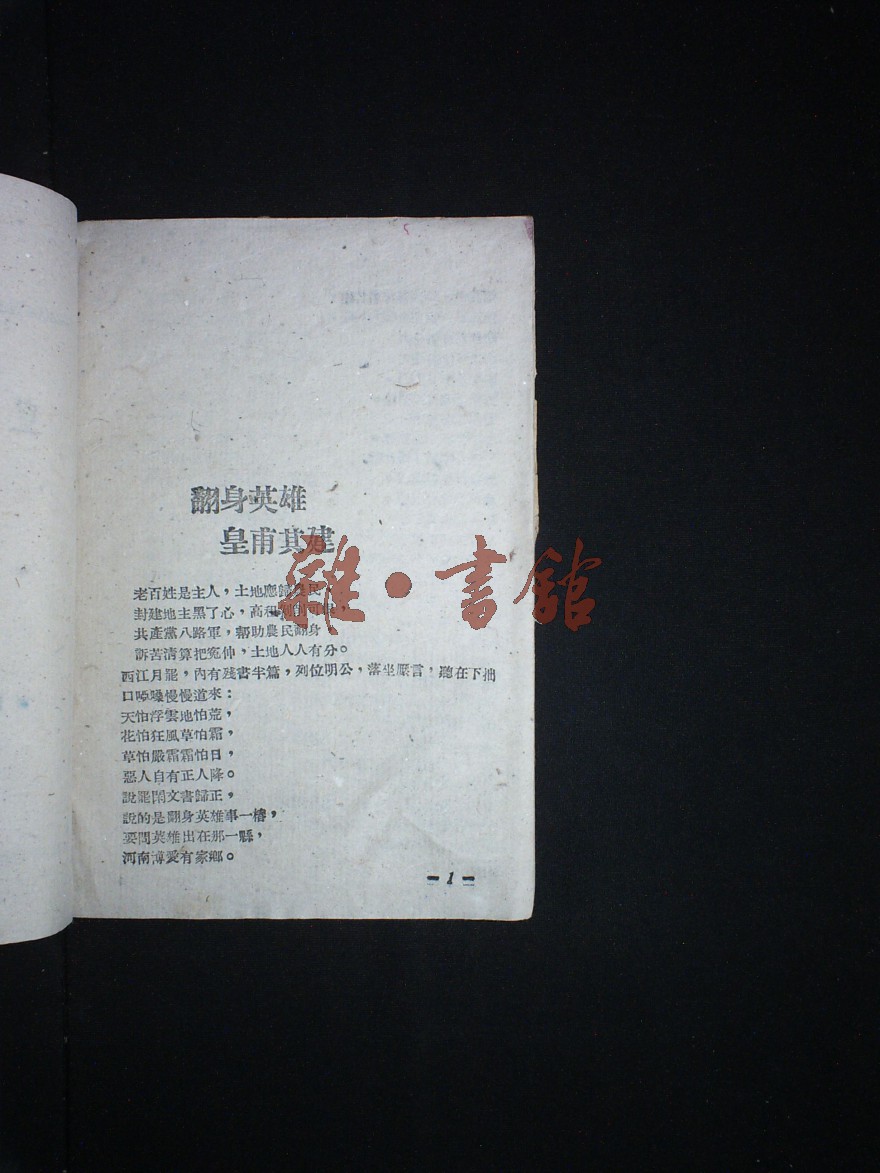 翻身英雄
皇甫其建
老百姓是主人，土地應歸農民，
封建地主黑了心，高租剝削可恨，
共產黨八路軍，幫助農民翻身，
訴苦清算把冤伸，土地人人有分。
西江月罷，內有殘書半篇，列位明公，落坐壓言，聽在下拙
口啞嗓慢慢道來：
天怕浮雲地怕荒，
花怕狂風草怕霜，
草怕嚴霜霜怕日，
惡人自有正人降。
說罷閑文書歸正，
說的是翻身英雄事一樁，
要問英雄出在那一縣，
河南博愛有家鄉。
— 1 —
雜·書館